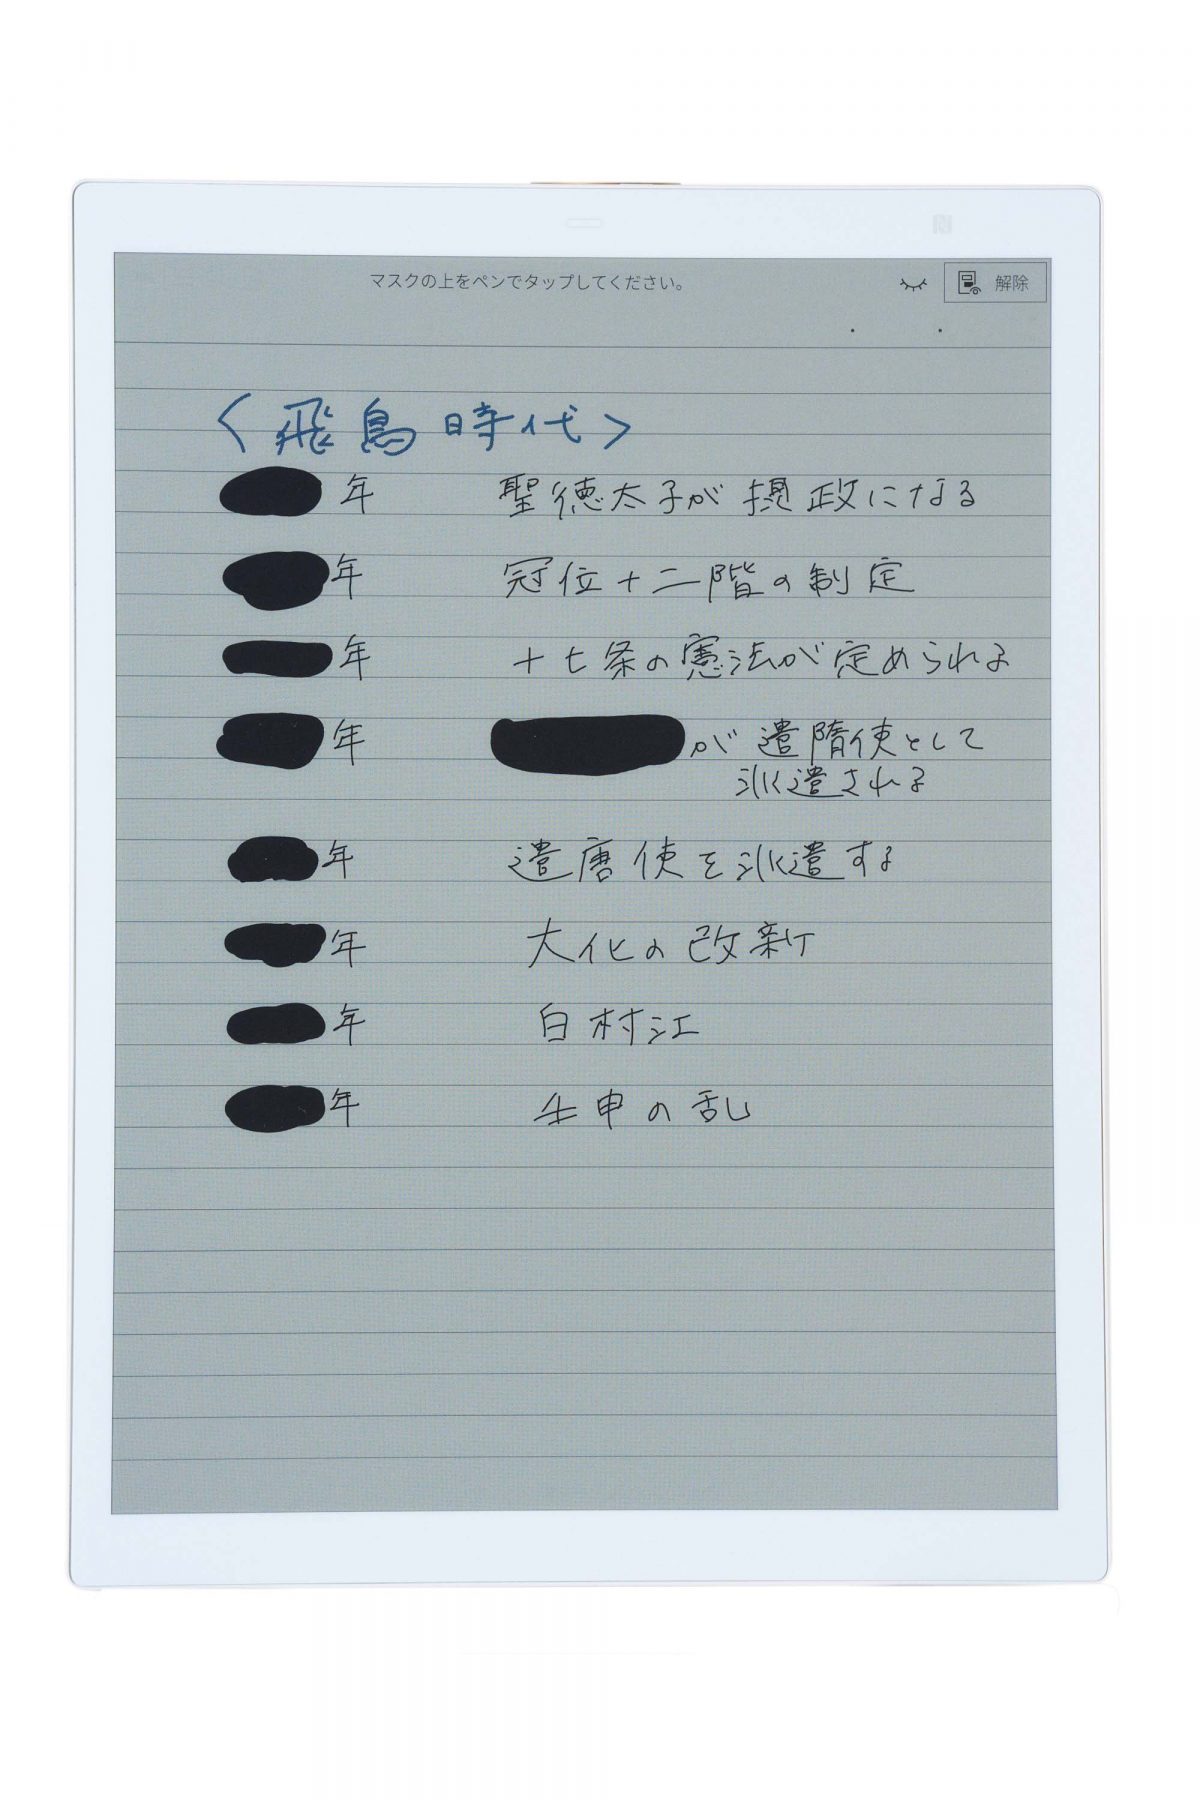 マスクの上をペンでタップしてください。
解除
<飛鳥時代>
年 聖徳太子が摂政になる
年 冠位十二階の制定
年 十七条の憲法が定められる
年 が遣隋使として
派遣される
年 遣唐使を派遣する
年 大化の改新
年 白村江
年 壬申の乱